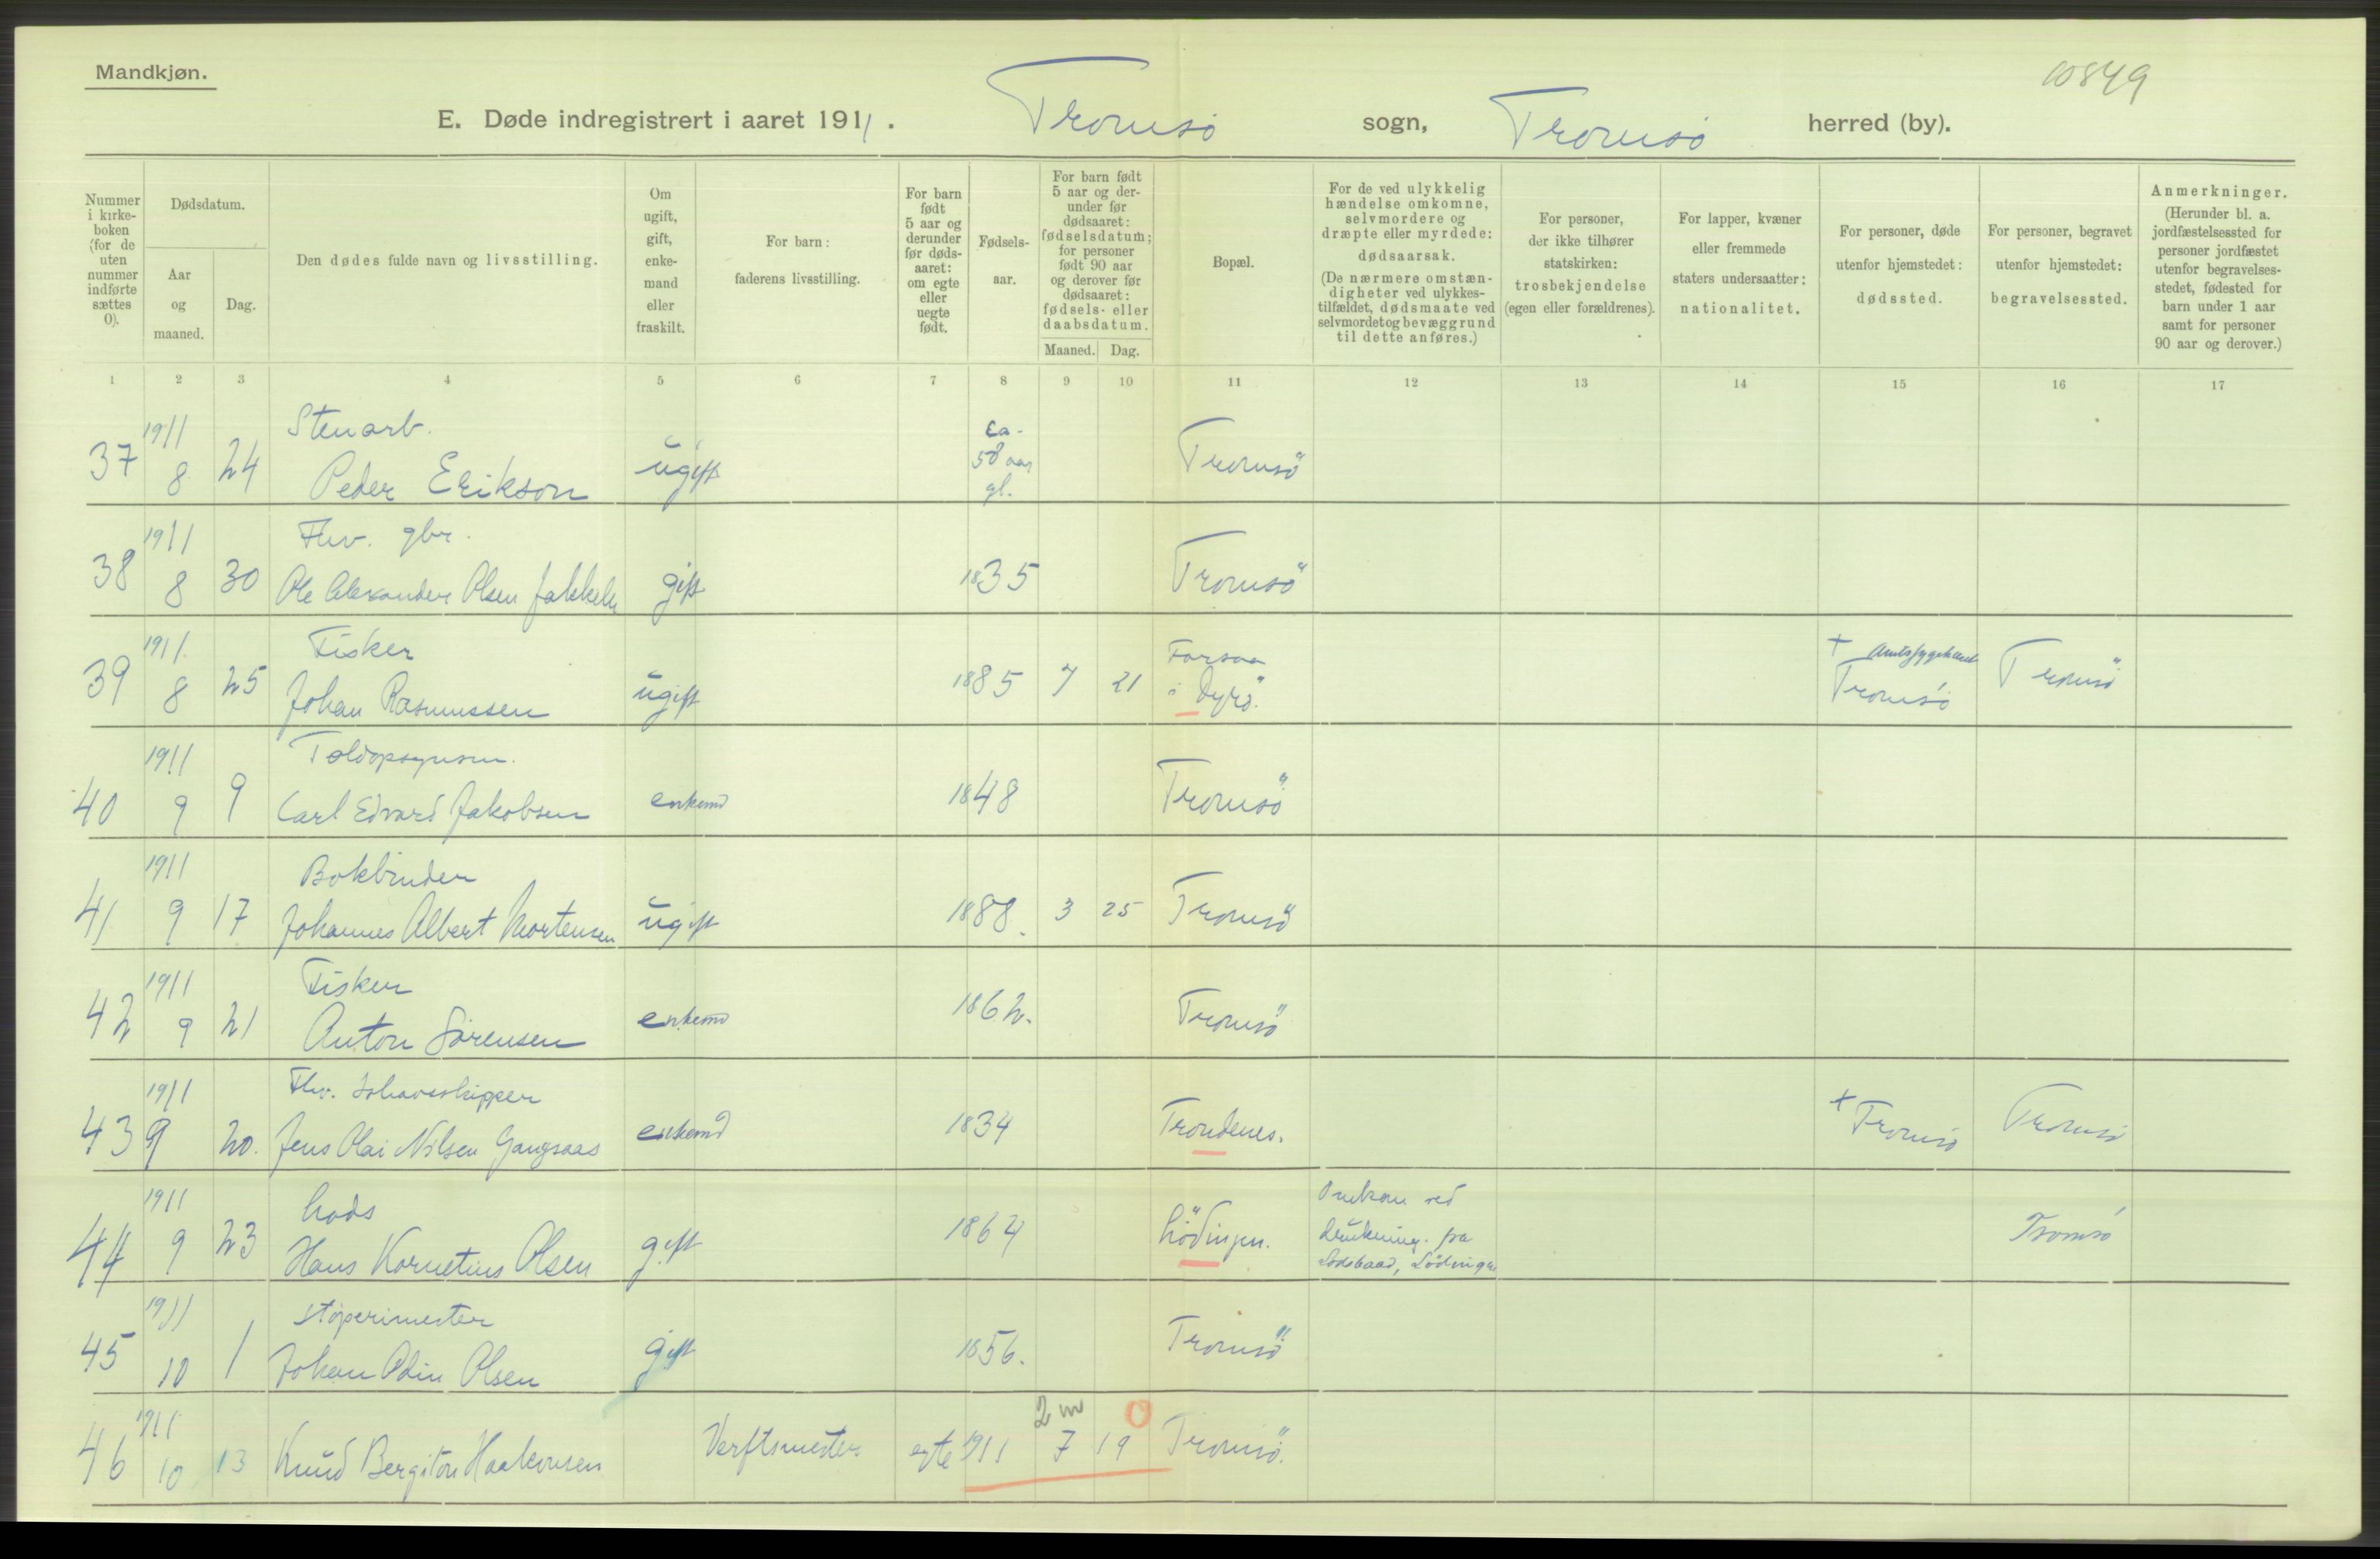 Mandkjøn.
10849
E. Døde indregistrert i aaret 1911. Tromsö sogn, Tromsö herred (by).
Nummer i kirke- boken (for de uten nummer indførte sættes 0).
Dødsdatum.
Aar og maaned.
Dag.
Den dødes fulde navn og livsstilling.
Om ugift, gift, enke- mand eller fraskilt.
For barn: faderens livsstilling.
For barn født 5 aar og derunder før døds- aaret: om egte eller uegte født.
Fødsels- aar.
For barn født 5 aar og der- under før dødsaaret: fødselsdatum; for personer født 90 aar og derover før dødsaaret: fødsels- eller daabsdatum.
Maaned. Dag.
Bopæl.
For de ved ulykkelig hændelse omkomne, selvmordere og dræpte eller myrdede: dødsaarsak. (De nærmere omstæn- digheter ved ulykkes- tilfældet, dødsmaate ved selvmordet og bevæggrund til dette anføres.)
For personer, der ikke tilhører statskirken: trosbekjendelse (egen eller forældrenes).
For lapper, kvæner eller fremmede staters undersaatter: nationalitet.
For personer, døde utenfor hjemstedet: dødssted.
For personer, begravet utenfor hjemstedet: begravelsessted.
Anmerkninger. (Herunder bl. a. jordfæstelsessted for personer jordfæstet utenfor begravelses- stedet, fødested for barn under 1 aar samt for personer 90 aar og derover.)
1 2 3 4 5 6 7 8 9 10 11 12 13 14 15 16 17
1911 Stenarb. ca.
37 8 24 Peder Erikson ugift 58 aar gl. Tromsö
1911 Fhv. gbr.
38 8 30 Ole Alexander Olsen gift 1835 Tromsö
1911 Fisker Forsaa + Amtssygehuset
39 8 25 Johan Rasmussen ugift 1885 7 21 i Dyrö. Tromsö Tromsö
1911 Toldopsynsm.
40 9 9 Carl Edvard Jakobsen enkemd 1848 Tromsö
1911 Bokbinder
41 9 17 Johannes Albert Mortensen ugift 1888. 3 25 Tromsö
1911 Fisker
42 9 21 Anton Sörensen enkemd 1862. Tromsö
1911 Fhv. Ishavsskipper
43 9 20. Jens Olai Nilsen Gangsaas enkemd 1834 Trondenes. + Tromsö Tromsö
1911 Lods Omkom ved
44 9 23 Hans Kornelius Olsen gift 1864 Lödingen. drukning. fra Tromsö
Lodsbaad, Lödingen
1911 Støperimester
45 10 1 Johan Odin Olsen gift 1856. Tromsö
1911 2 m 0
46 10 13 Knud Bergiton Haakonsen Verftsmester egte 1911 7 19 Tromsö.